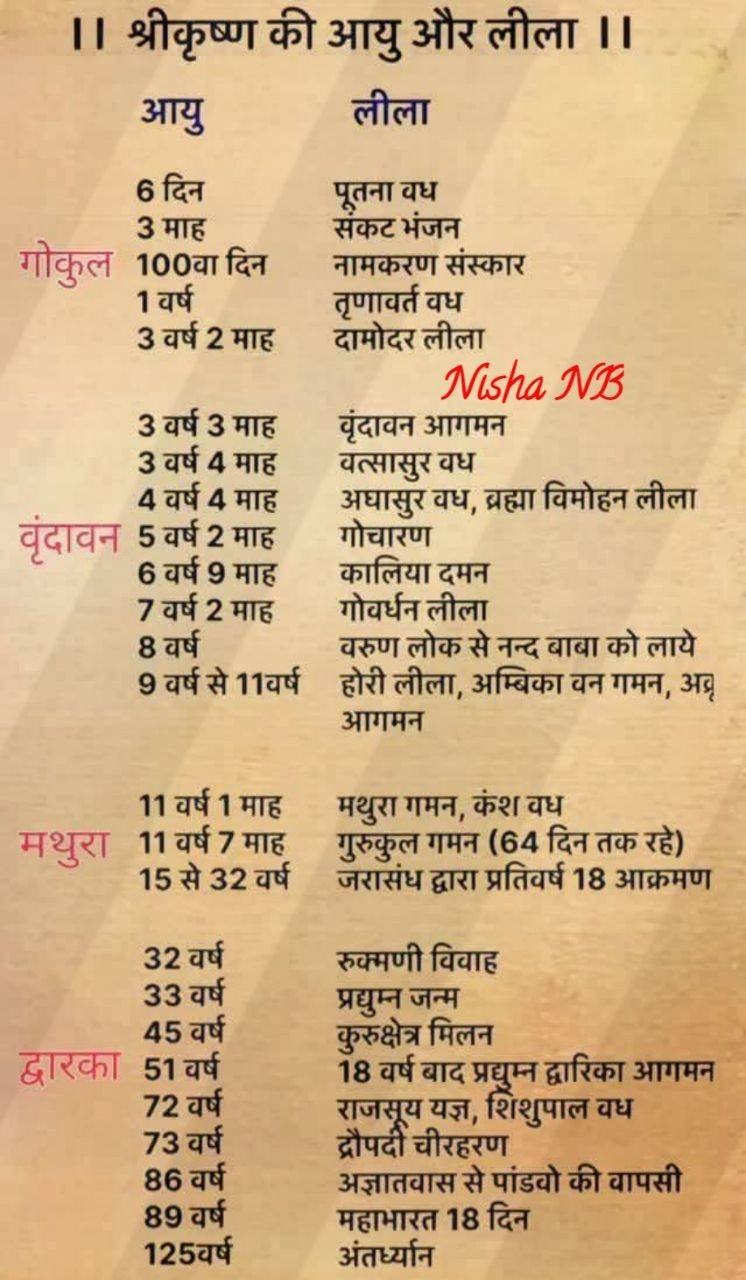 ।। श्रीकृष्ण की आयु और लीला ।।
आयु लीला
गोकुल
6 दिन पूतना वध
3 माह संकट भंजन
100वा दिन नामकरण संस्कार
1 वर्ष तृणावर्त वध
3 वर्ष 2 माह दामोदर लीला
Nisha NB
वृंदावन
3 वर्ष 3 माह वृंदावन आगमन
3 वर्ष 4 माह वत्सासुर वध
4 वर्ष 4 माह अघासुर वध, व्रह्मा विमोहन लीला
5 वर्ष 2 माह गोचारण
6 वर्ष 9 माह कालिया दमन
7 वर्ष 2 माह गोवर्धन लीला
8 वर्ष वरुण लोक से नन्द बाबा को लाये
9 वर्ष से 11वर्ष होरी लीला, अम्बिका वन गमन,
आगमन
मथुरा
11 वर्ष 1 माह मथुरा गमन, कंश वध
11 वर्ष 7 माह गुरुकुल गमन (64 दिन तक रहे)
15 से 32 वर्ष जरासंध द्वारा प्रतिवर्ष 18 आक्रमण
द्वारका
32 वर्ष रुक्मणी विवाह
33 वर्ष प्रद्युम्न जन्म
45 वर्ष कुरुक्षेत्र मिलन
51 वर्ष 18 वर्ष बाद प्रद्युम्न द्वारिका आगमन
72 वर्ष राजसूय यज्ञ, शिशुपाल वध
73 वर्ष द्रौपदी चीरहरण
86 वर्ष अज्ञातवास से पांडवो की वापसी
89 वर्ष महाभारत 18 दिन
125वर्ष अंतर्ध्यान